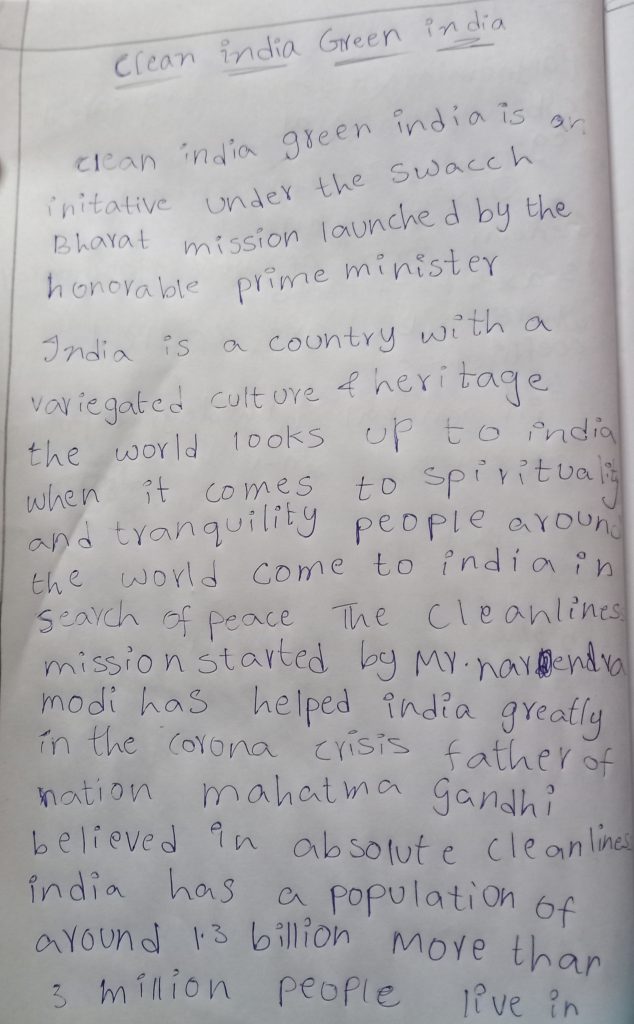 Clean india Green india
clean india green india is an
initative under the swacch
Bharat mission launched by the
honorable prime minister
India is a country with a
variegated culture & heritage
the world looks up to india
when it comes to spirituality
and tranquility people around
the world come to india in
search of peace The cleanlines
mission started by Mr. narendra
modi has helped india greatly
in the corona crisis father of
nation mahatma gandhi
believed in absolute cleanlines
india has a population of
around 1.3 billion more than
3 million people live in